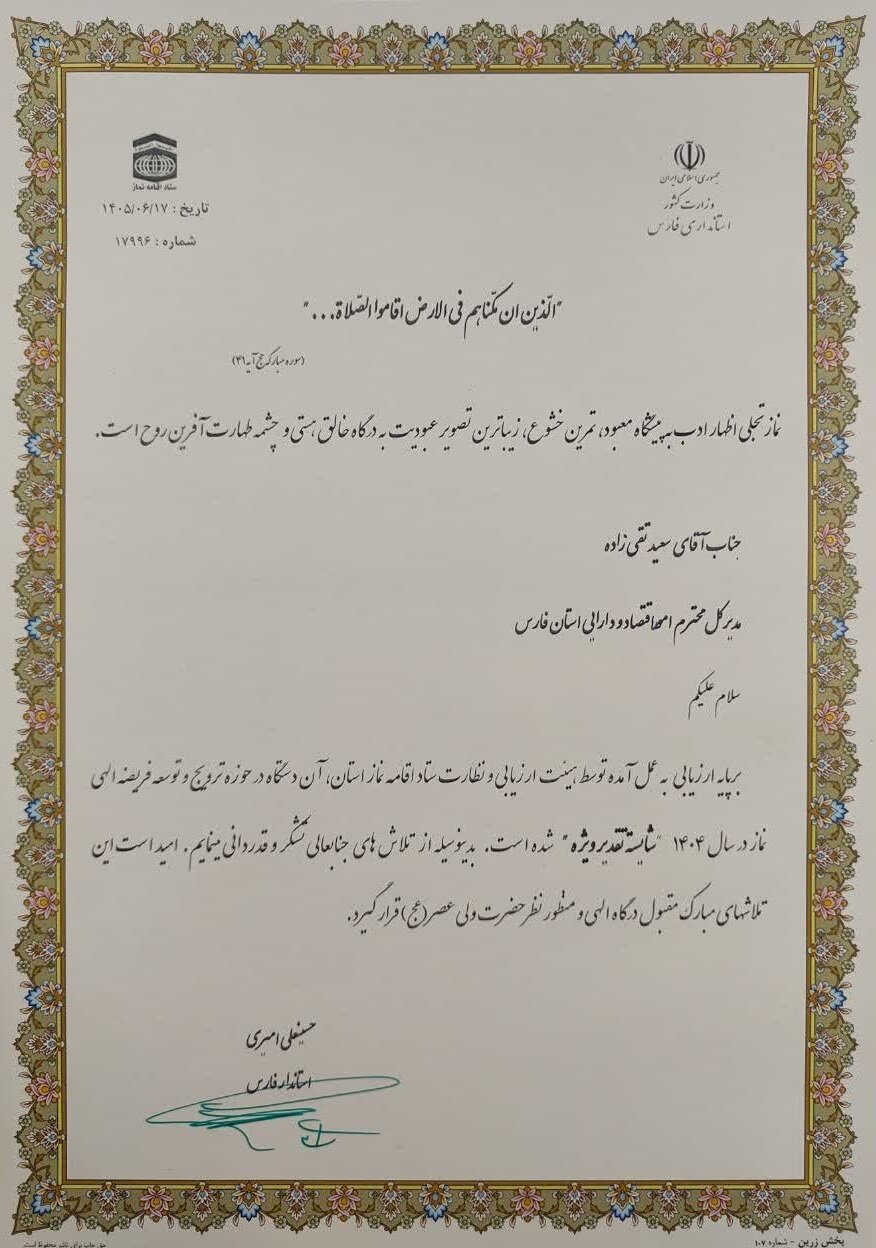 جمهوری اسلامی ایران
وزارت کشور
استانداری فارس
ستاد اقامه نماز
تاریخ : ۱۴۰۵/۰۶/۱۷
شماره : ۱۷۹۹۶
"الّذین ان مکّناهم فی الارض اقاموا الصّلاة..."
(سوره مبارکه حج آیه ۴۱)
نماز تجلی اظهار ادب به پیشگاه معبود، تمرین خشوع، زیباترین تصویر عبودیت به درگاه خالق هستی و چشمه طهارت آفرین روح است.
جناب آقای سعید تقی زاده
مدیرکل محترم امور اقتصاد و دارایی استان فارس
سلام علیکم
برپایه ارزیابی به عمل آمده توسط هیئت ارزیابی و نظارت ستاد اقامه نماز استان، آن دستگاه در حوزه ترویج و توسعه فریضه الهی
نماز در سال ۱۴۰۴ "شایسته تقدیر ویژه" شده است. بدینوسیله از تلاش های جنابعالی تشکر و قدردانی مینمایم. امید است این
تلاشهای مبارک مقبول درگاه الهی و منظور نظر حضرت ولی عصر(عج) قرار گیرد.
حسینعلی امیری
استاندار فارس
پخش زرین - شماره ۱۰۷
حق چاپ برای ناشر محفوظ است.